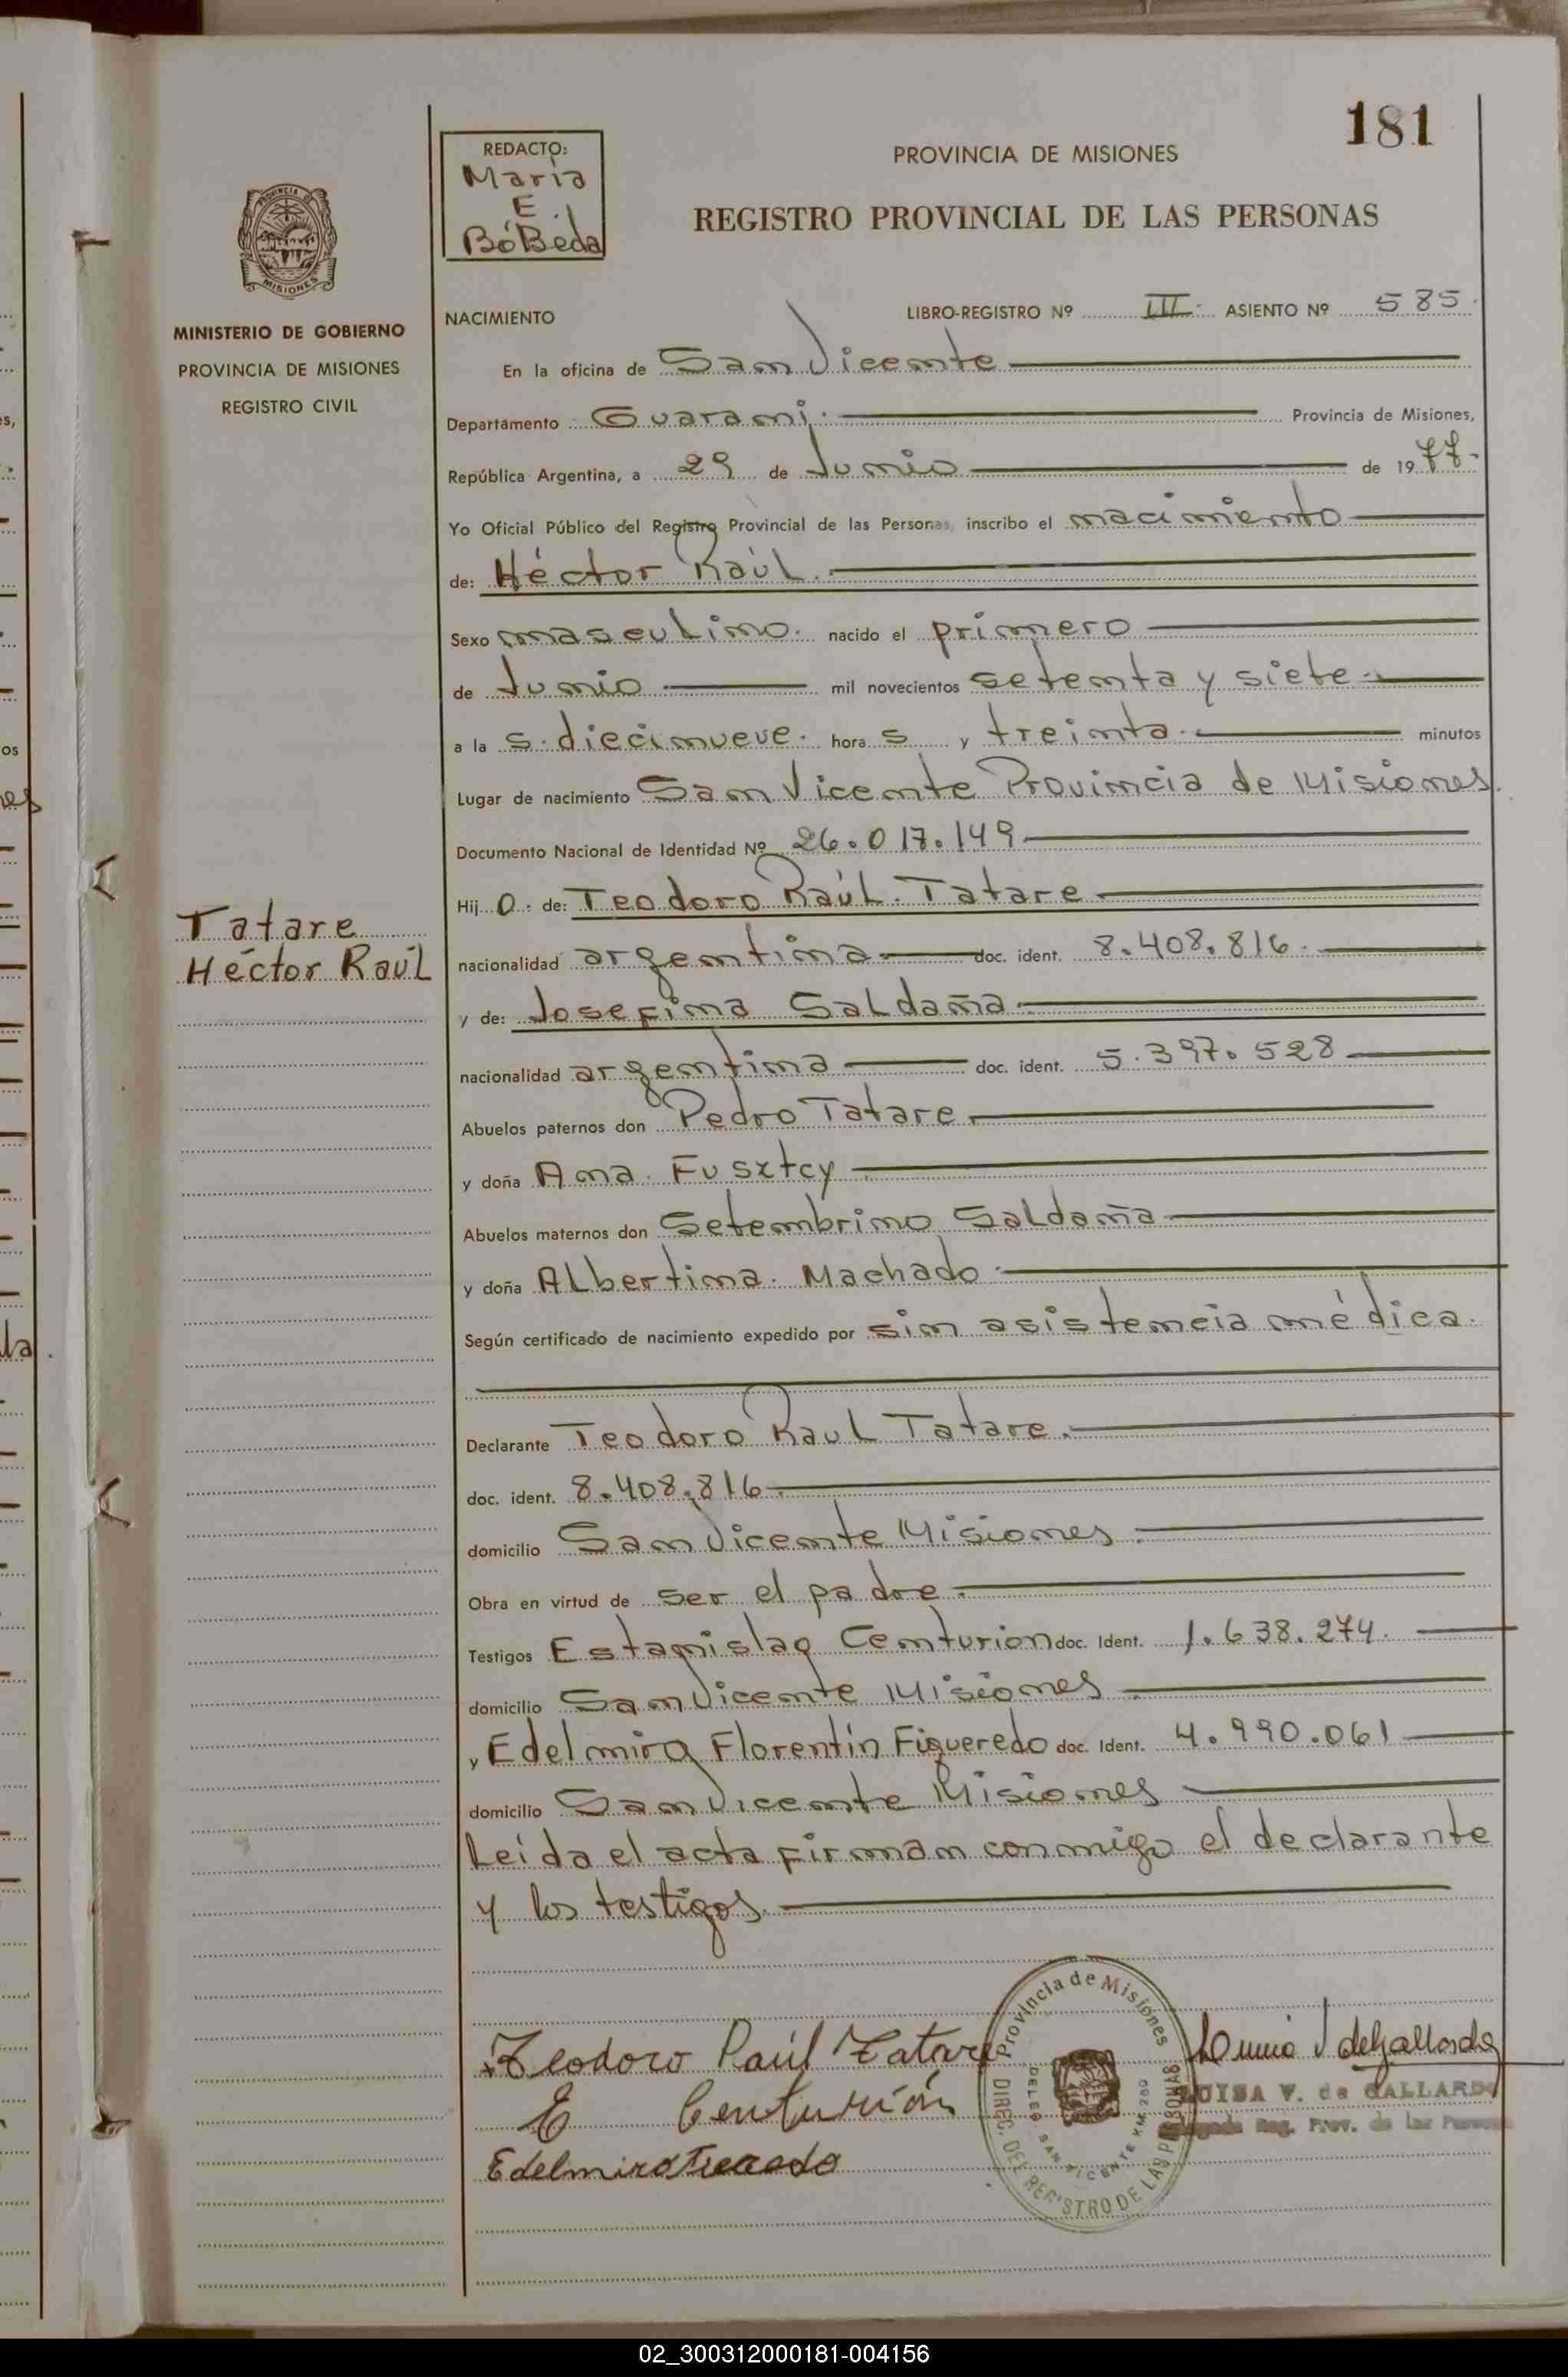 181
REDACTO:
María
E.
BóBeda
PROVINCIA DE MISIONES
REGISTRO PROVINCIAL DE LAS PERSONAS
PROVINCIA
MISIONES
MINISTERIO DE GOBIERNO
PROVINCIA DE MISIONES
REGISTRO CIVIL
NACIMIENTO LIBRO-REGISTRO Nº III. ASIENTO Nº 585.
En la oficina de San Vicente
Departamento Guarani. Provincia de Misiones,
República Argentina, a 29 de Junio de 1977.
Yo Oficial Público del Registro Provincial de las Personas, inscribo el nacimiento
de: Héctor Raúl.
Sexo masculino. nacido el primero
de Junio mil novecientos setenta y siete.
a la s. diecinueve. hora s y treinta. minutos
Lugar de nacimiento San Vicente Provincia de Misiones.
Documento Nacional de Identidad Nº 26.017.149
Hij o. de: Teodoro Raúl. Tatare
Tatare
Héctor Raúl
nacionalidad argentina doc. ident. 8.408.816.
y de: Josefina Saldaña
nacionalidad argentina doc. ident. 5.397.528
Abuelos paternos don Pedro Tatare.
y doña Ana. Fusxtcy
Abuelos maternos don Setembrino Saldaña
y doña ALbertina. Machado.
Según certificado de nacimiento expedido por sin asistencia médica.
Declarante Teodoro Raul Tatare.
doc. ident. 8.408.816
domicilio San Vicente Misiones.
Obra en virtud de ser el padre.
Testigos Estanislao Centurion doc. Ident. 1.638.274.
domicilio San Vicente Misiones.
y Edelmira Florentín Figueredo doc. Ident. 4.990.061
domicilio San Vicente Misiones
Leída el acta firman conmigo el declarante
y los testigos.
Teodoro Raúl Tatare
E Centurión
Edelmira
Provincia de Misiones
DIREC. DEL REGISTRO DE LAS PERSONAS
DELEG. SAN VICENTE KM. 280
de Gallardo
LUISA V. de GALLARDO
Reg. Prov. de las Personas
02_300312000181-004156